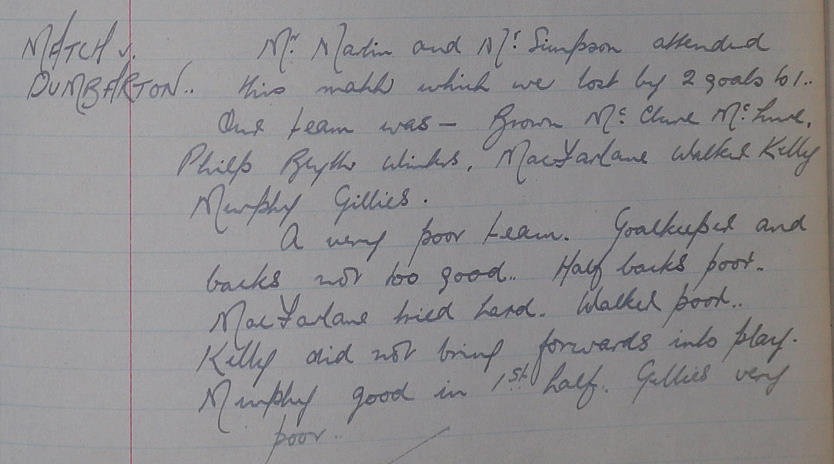 MATCH v. Mr. Martin and Mr. Simpson attended
DUMBARTON.. this match which we lost by 2 goals to 1..
Our team was — Brown McClure McLure,
Philp Blyth Winters, MacFarlane Walker Kelly
Murphy Gillies.
A very poor team. Goalkeeper and
backs not too good.. Half backs poor..
MacFarlane tried hard. Walker poor..
Kelly did not bring forwards into play.
Murphy good in 1st half. Gillies very
poor..